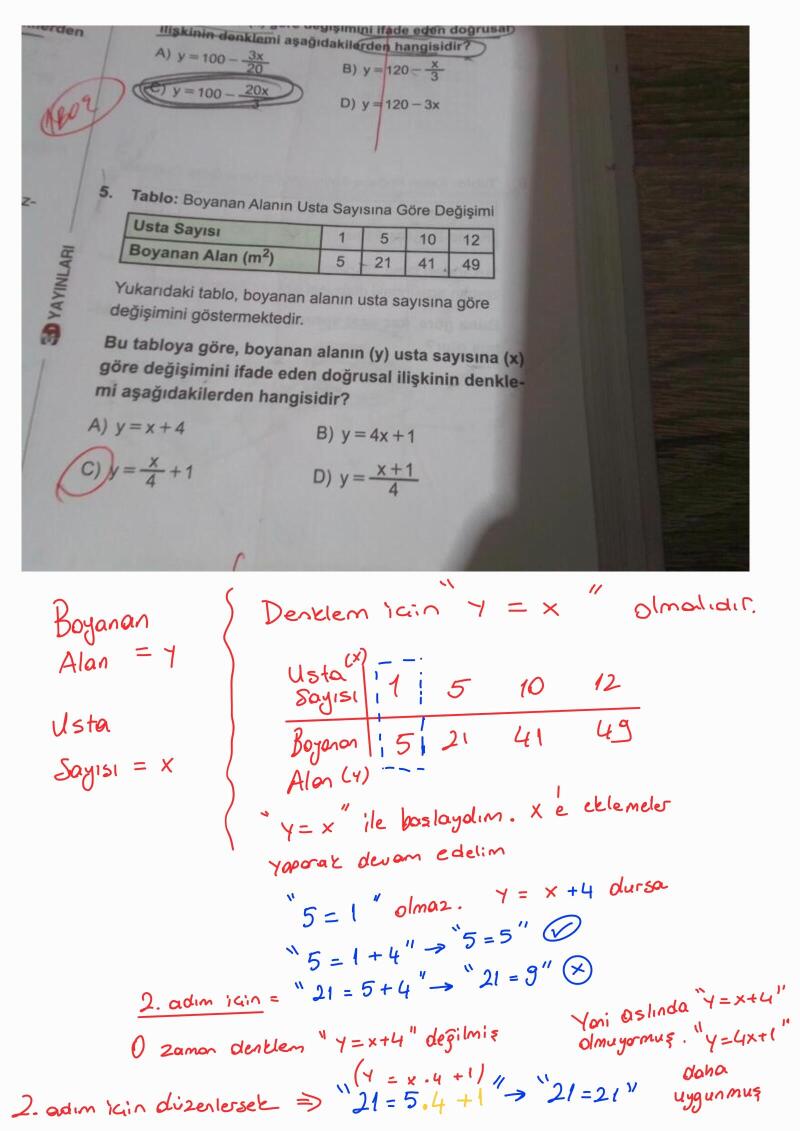 ilişkinin denklemi aşağıdakilerden hangisidir?
A) y = 100 − 3x/20
B) y = 120 − x/3
C) y = 100 − 20x/3
D) y = 120 − 3x
5. Tablo: Boyanan Alanın Usta Sayısına Göre Değişimi
Usta Sayısı 1 5 10 12
Boyanan Alan (m²) 5 21 41 49
3D YAYINLARI
Yukarıdaki tablo, boyanan alanın usta sayısına göre
değişimini göstermektedir.
Bu tabloya göre, boyanan alanın (y) usta sayısına (x)
göre değişimini ifade eden doğrusal ilişkinin denkle-
mi aşağıdakilerden hangisidir?
A) y = x + 4
B) y = 4x + 1
C) y = x/4 + 1
D) y = x + 1/4
Boyanan
Alan = y
Usta
Sayısı = x
Denklem için "y = x" olmalıdır.
Usta (x)
Sayısı 1 5 10 12
Boyanan 5 21 41 49
Alan (y)
"y = x" ile başlaydım. x'e eklemeler
yaparak devam edelim
"5 = 1" olmaz. y = x + 4 dursa
"5 = 1 + 4" → "5 = 5"
2. adım için = "21 = 5 + 4" → "21 = 9"
O zaman denklem "y = x+4" değilmiş
Yani aslında "y = x+4"
olmuyormuş. "y = 4x+1"
daha
uygunmuş
(y = x . 4 + 1)
2. adım için düzenlersek ⇒ "21 = 5.4 + 1" → "21 = 21"